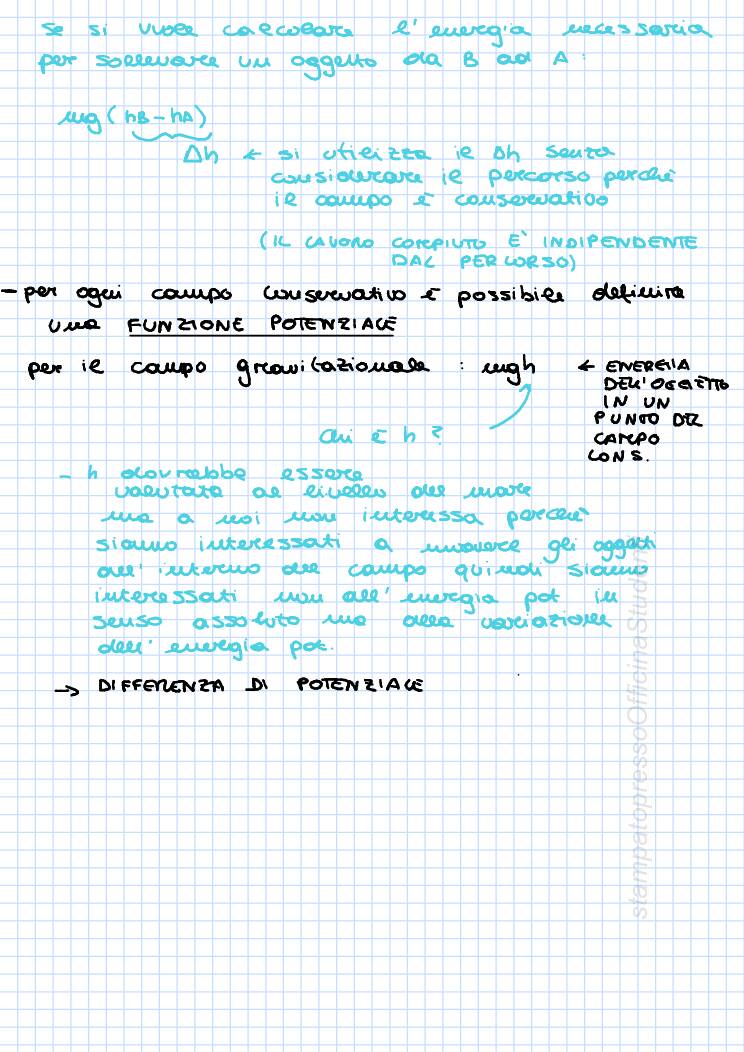 se si vuole calcolare l'energia necessaria
per sollevare un oggetto da B ad A:
mg (hB - hA)
Δh ← si utilizza il Δh senza
considerare il percorso perché
il campo è conservativo
(IL LAVORO COMPIUTO E' INDIPENDENTE
DAL PERCORSO)
- per ogni campo conservativo è possibile definire
una FUNZIONE POTENZIALE
per il campo gravitazionale : mgh ← ENERGIA
DELL'OGGETTO
IN UN
PUNTO DEL
CAMPO
CONS.
Chi è h?
- h dovrebbe essere
valutata al livello del mare
ma a noi non interessa perché
siamo interessati a muovere gli oggetti
all'interno del campo quindi siamo
interessati non all'energia pot in
senso assoluto ma alla variazione
dell'energia pot.
→ DIFFERENZA DI POTENZIALE
stampatopressoOfficinaStudenti